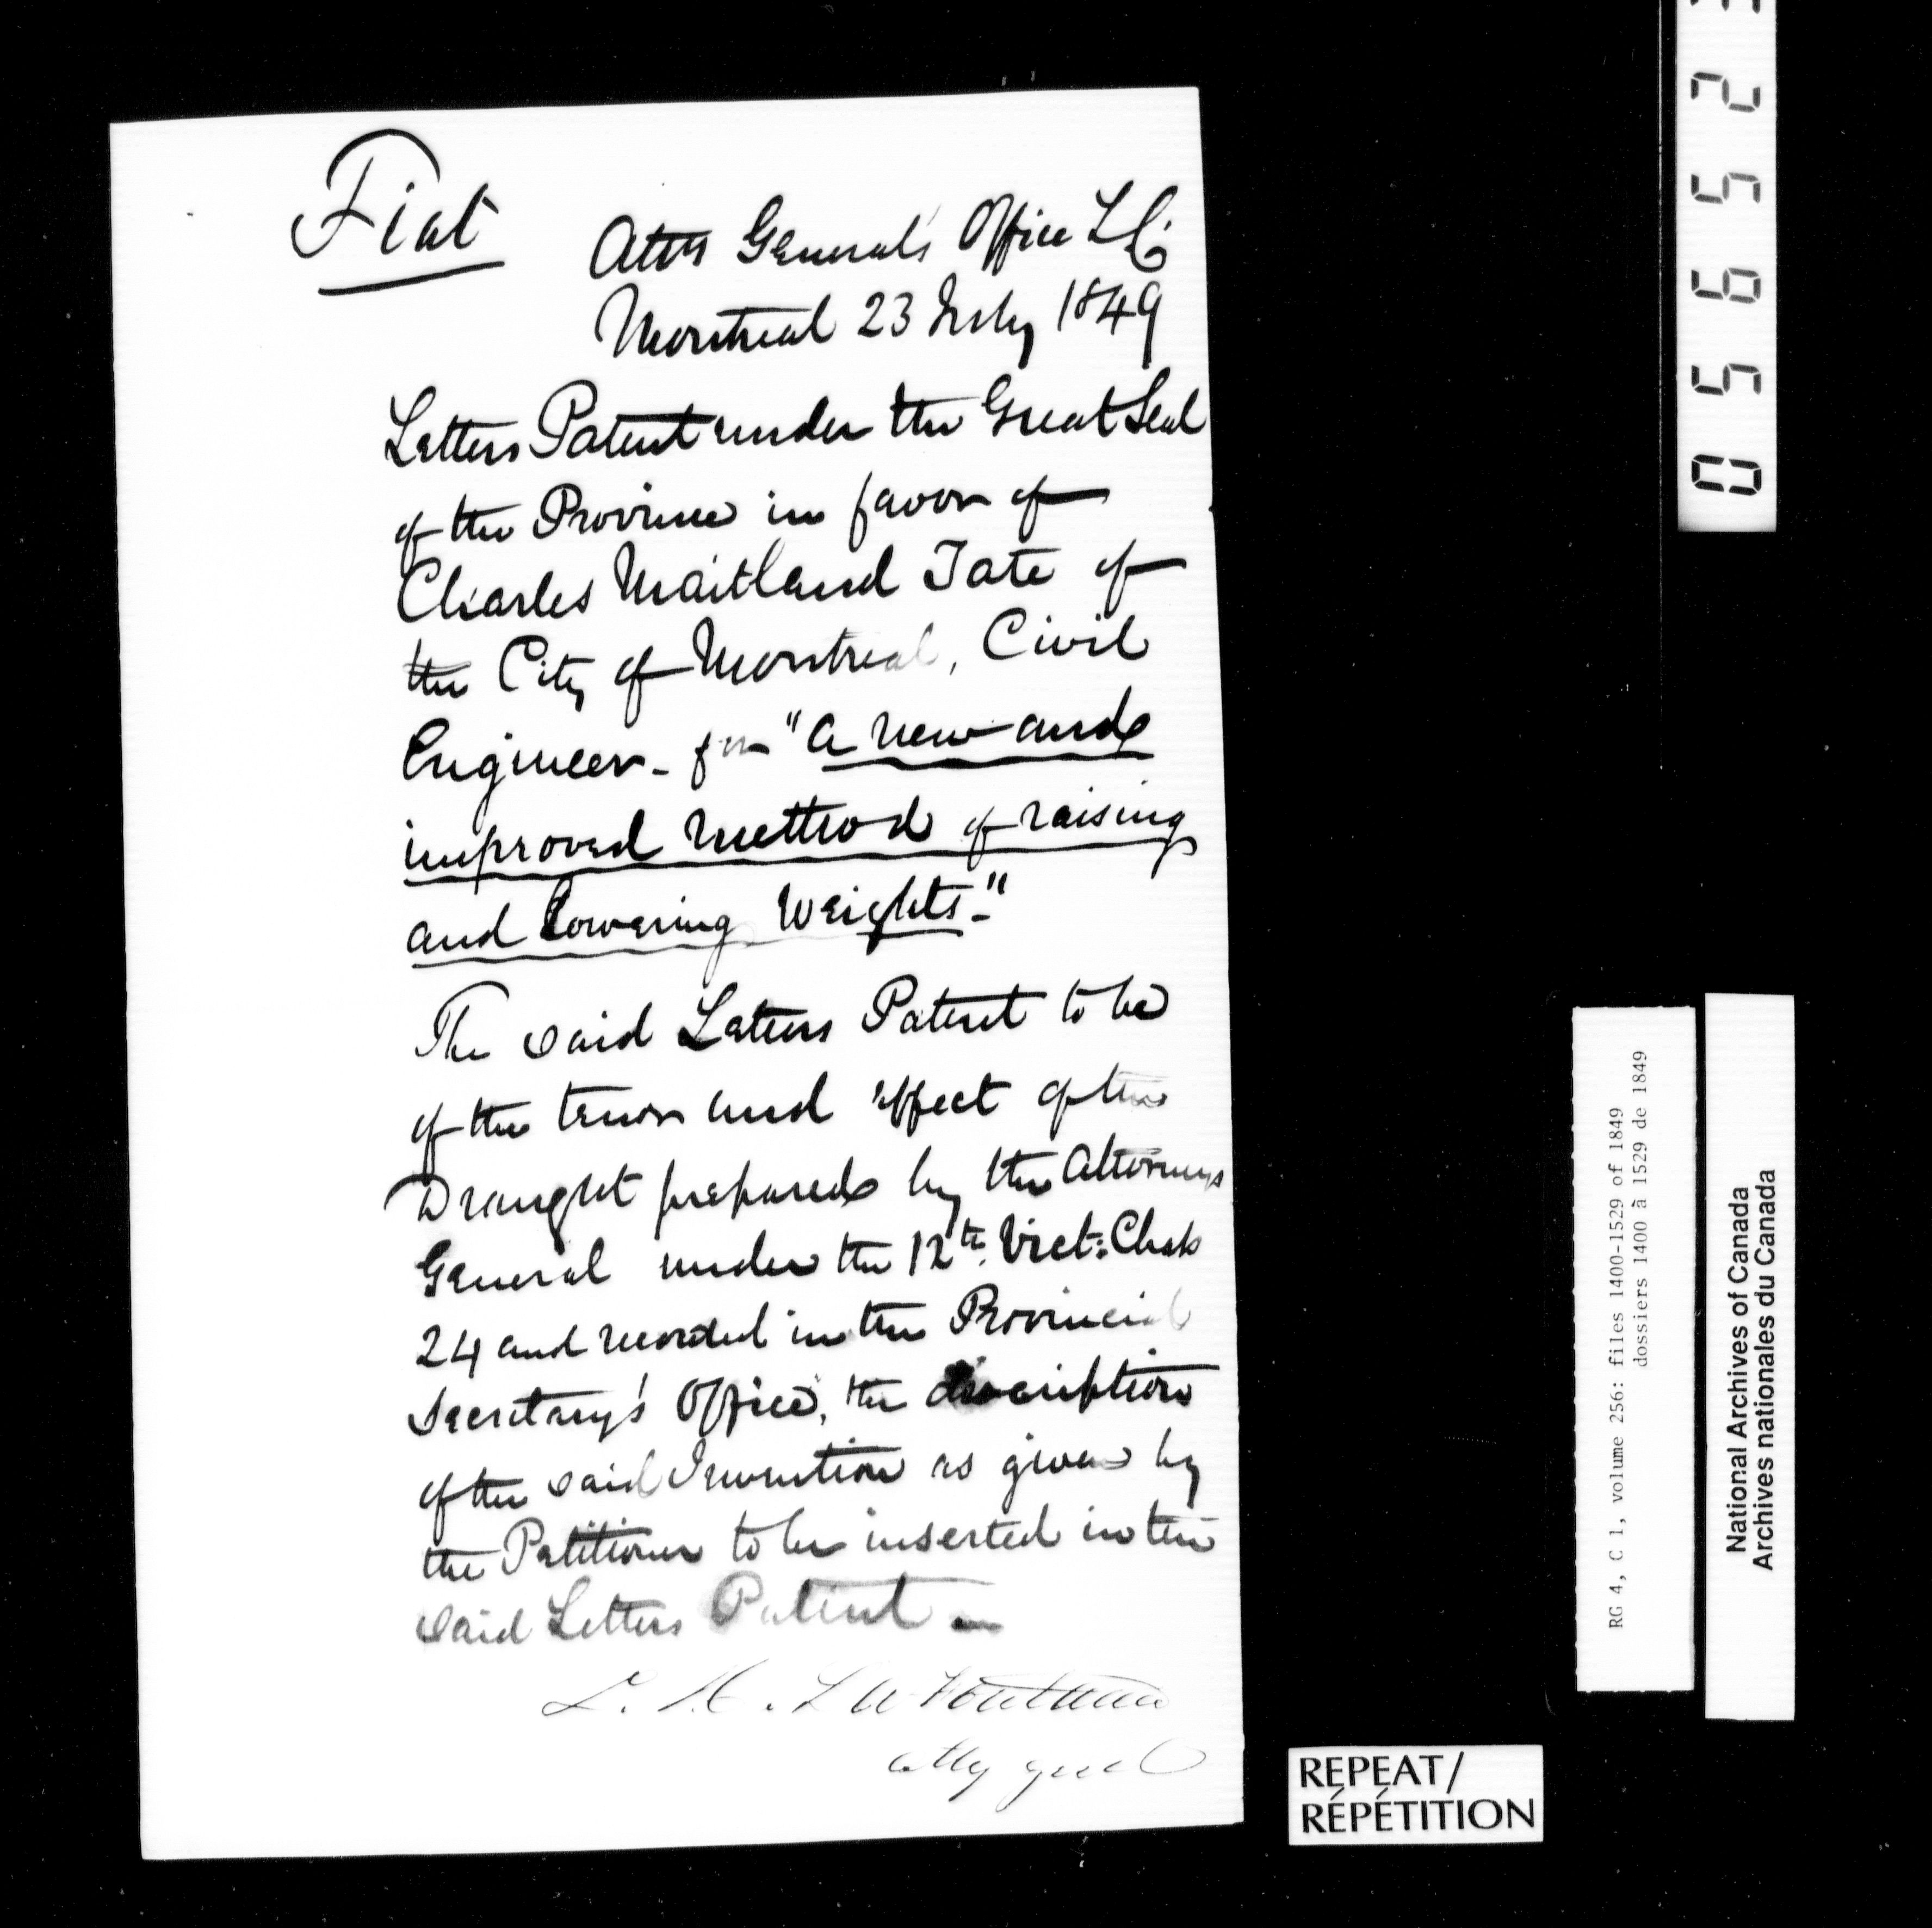 Fiat
Atty General's Office L C.
Montreal 23 July 1849
Letters Patent under the Great Seal
of the Province in favor of
Charles Maitland Tate of
the City of Montreal, Civil
Engineer - for "a new and
improved method of raising
and lowering weights."
The said Letters Patent to be
of the tenor and effect of the
Draught prepared by the Attorney
General under the 12th. Vict: Chap
24 and recorded in the Provincial
Secretary's Office, the description
of the said Invention as given by
the Petitioner to be inserted in the
said Letters Patent -
L. H. LaFontaine
Atty Genl
05652
RG 4, C 1, volume 256: files 1400-1529 of 1849
dossiers 1400 à 1529 de 1849
National Archives of Canada
Archives nationales du Canada
REPEAT/
RÉPÉTITION